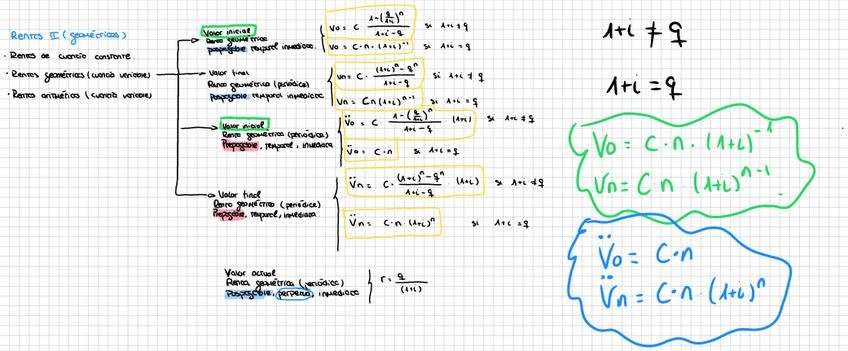 Rentas II (geométricas)
· Rentas de cuantía constante.
· Rentas geométricas (cuantía variable)
· Rentas aritmética (cuantía variable)
Valor inicial
Renta geométrica
pospagable temporal inmediata.
V₀ = C · (1-(q/(1+i))ⁿ)/(1+i-q) si 1+i ≠ q
V₀ = C·n·(1+i)⁻¹ si 1+i = q
Valor final
Renta geométrica (periódica)
Pospagable temporal inmediata
Vn = C · ((1+i)ⁿ - qⁿ)/(1+i-q) si 1+i ≠ q
Vn = Cn(1+i)ⁿ⁻¹ si 1+i = q
Valor inicial
Renta geométrica (periódica)
Prepagable, temporal, inmediata
V̈₀ = C · (1-(q/(1+i))ⁿ)/(1+i-q) · (1+i) si 1+i ≠ q
V̈₀ = C·n si 1+i = q
Valor final
Renta geométrica (periódica)
Prepagable, temporal, inmediata
V̈n = C · ((1+i)ⁿ - qⁿ)/(1+i-q) · (1+i) si 1+i ≠ q
V̈n = C·n·(1+i)ⁿ si 1+i = q
Valor actual
Renta geométrica (periódica)
Pospagable, perpetua, inmediata
r = q/(1+i)
1+i ≠ q
1+i = q
V₀ = C·n·(1+i)⁻¹
Vn = C·n·(1+i)ⁿ⁻¹
V̈₀ = C·n
V̈n = C·n·(1+i)ⁿ